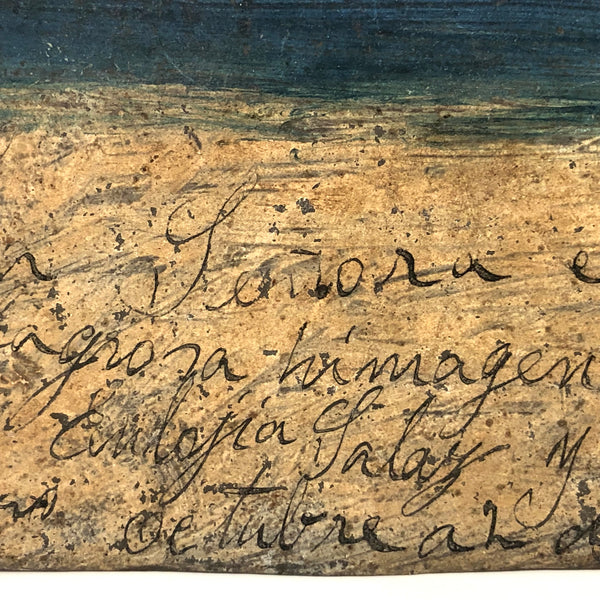 Señora e
agrosa himagen
Eulojia Salas y
octubre